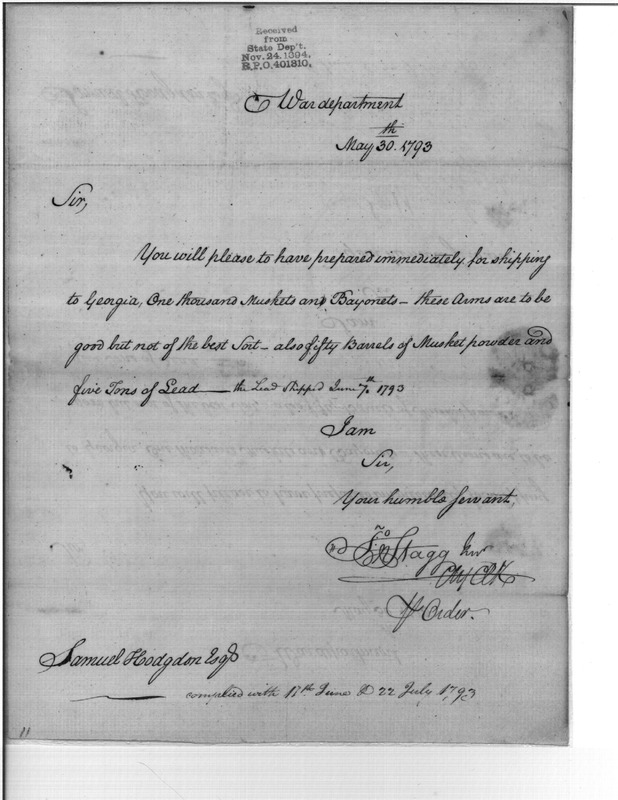 Received
from
State Dep't.
Nov. 24. 1894.
B.P.O. 401810.
War department
May 30.th 1793
Sir,
You will please to have prepared immediately for shipping
to Georgia, One thousand Muskets and Bayonets – these Arms are to be
good but not of the best Sort – also fifty Barrels of Musket powder and
five Tons of Lead — the Lead Shipped June 7th. 1793
I am
Sir,
Your humble Servant,
Jno Stagg Junr
Chf Clk
Order.
Samuel Hodgdon Esqr
complied with 17th June & 22 July 1793
11